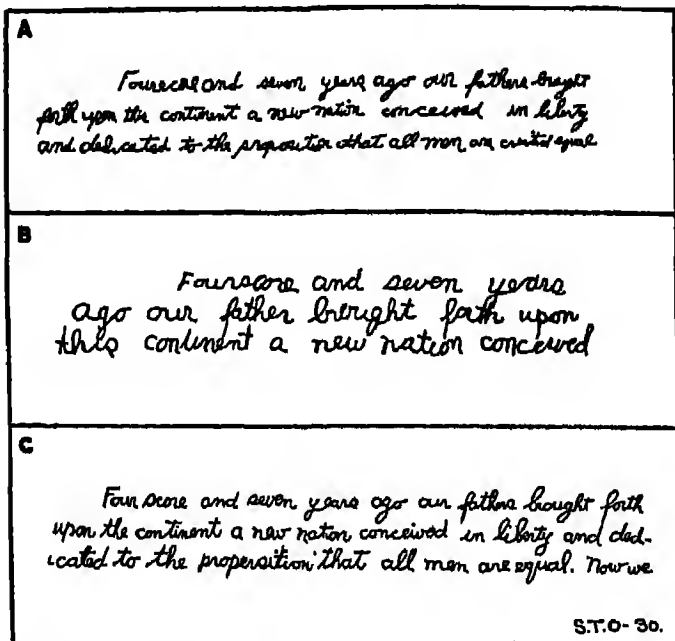 A
Fourscore and seven years ago our fathers brought
forth upon the continent a new nation conceived in liberty
and dedicated to the proposition that all men are created equal
B
Fourscore and seven years
ago our father brought forth upon
this continent a new nation conceived
C
Four score and seven years ago our fathers brought forth
upon the continent a new nation conceived in liberty and ded-
icated to the propersition that all men are equal. Now we
S.T.O-30.